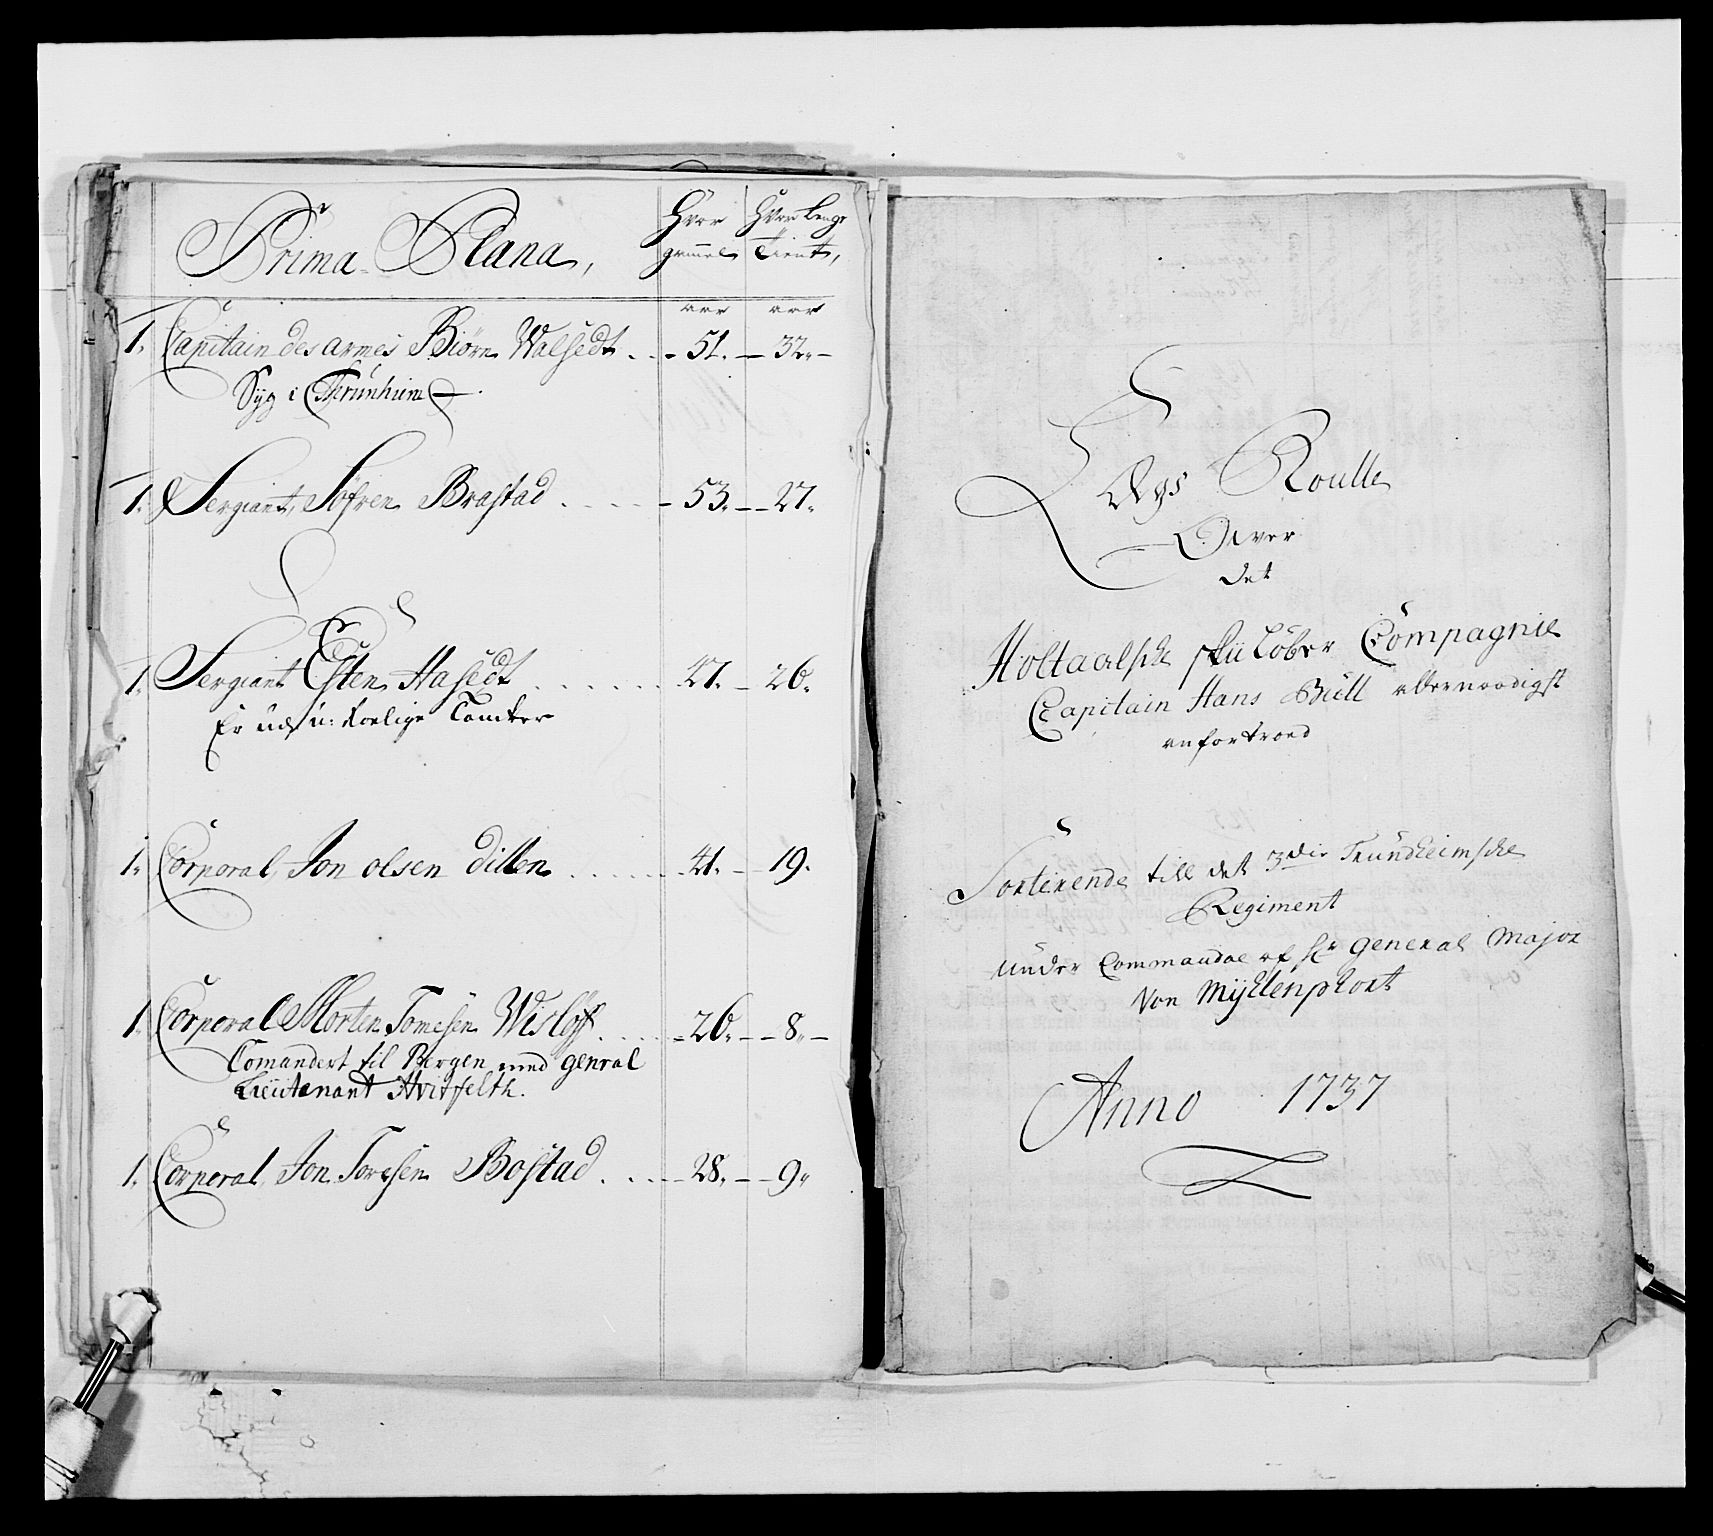 Prima Plana,
Hvor gammel
Hvor Lenge Tient,
aar aar
1. Capitain des armes Biörn Walsedt . . - 51. - 32. -
Syg i Thrunhiem
1. Sergiant, Söfren Brastad . . . . - 53. - - 27.
1. Sergiant Esten Hasedt . . . . . . 47. - 26.
Er ud
1. Corporal, Jon olsen Dillen . . . . . 41. - 19.
1. Corporal Morten Tomesen Wisløff . . . . - 26. - - 8. -
Comandert til Bergen med genral
Lieutenant Hvitfelth.
1. Corporal, Jon Toresen Bostad . . . - 28. - - 9.
Roulle
Over
det
Holtaalsche skiiløber Compagnie
Capitain Hans Büll allernaadigst
anfortroed
Sorterende till det 3die Trundheimsche
Regiment
under Commandoe af Hr General Major
Von Myhlenphort
Anno 1737